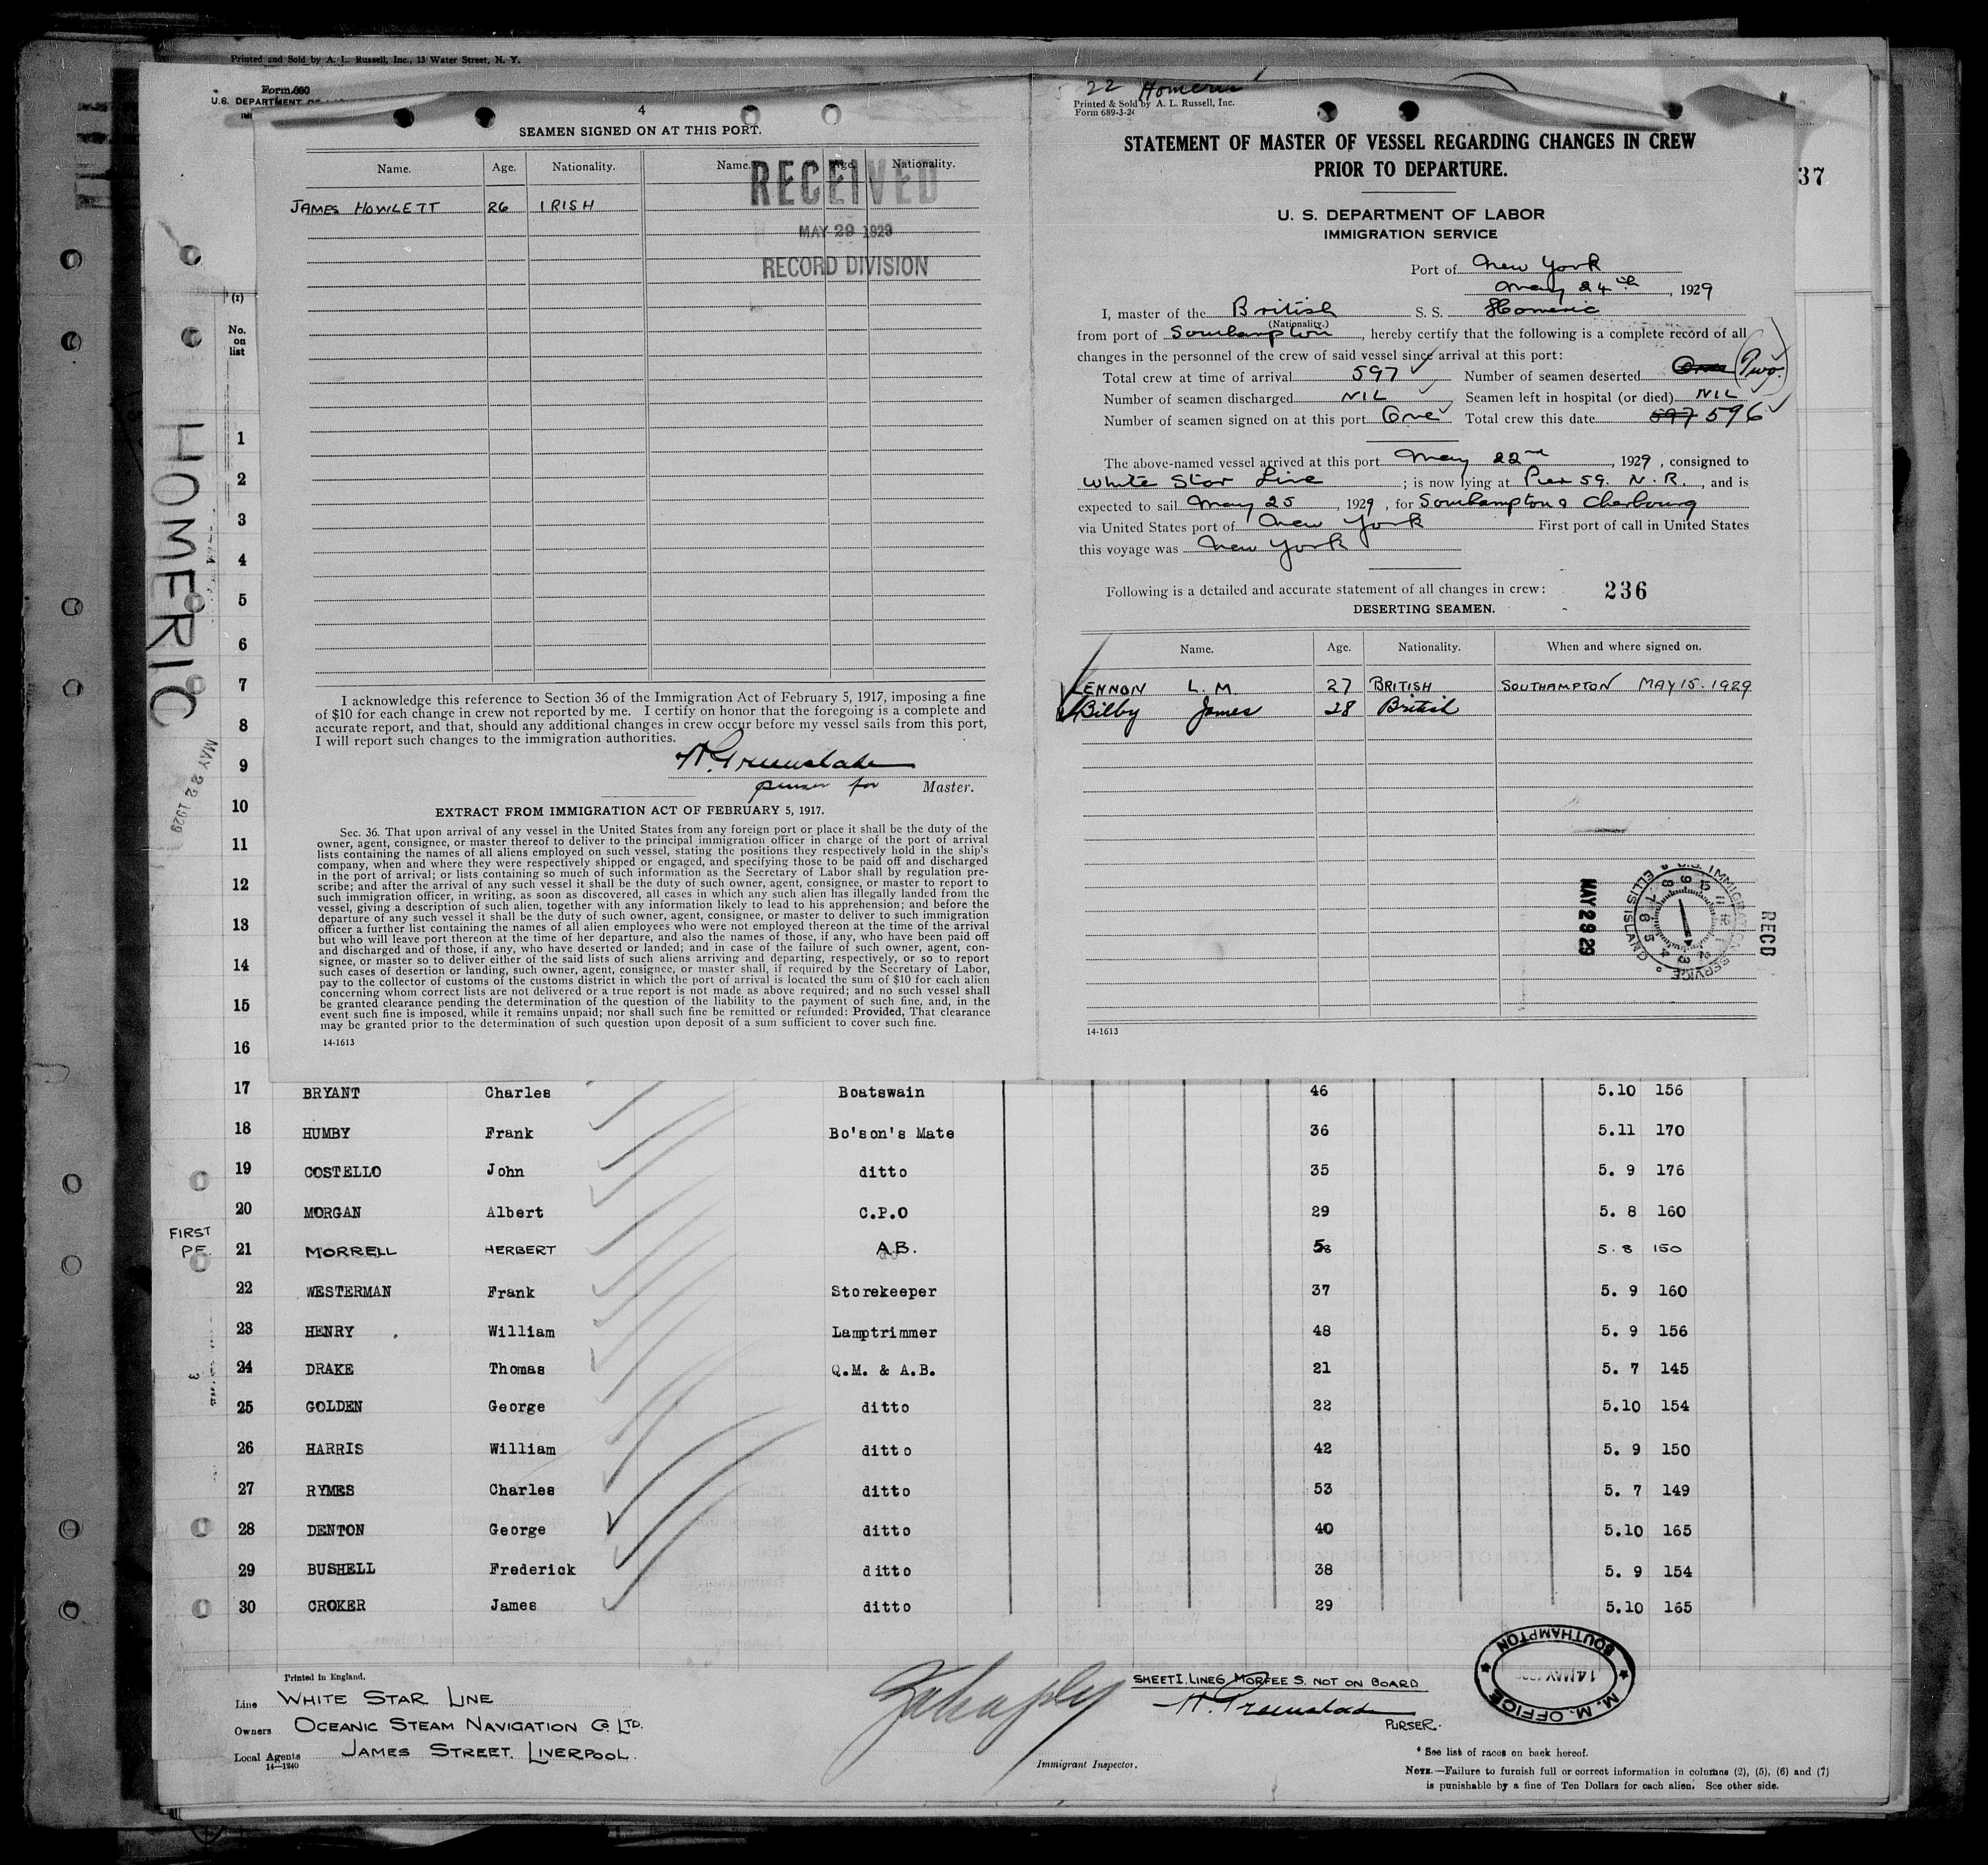 Printed and Sold by A. L. Russell, Inc., 13 Water Street, N. Y.
Form 680
U.S. DEPARTMENT OF
4
SEAMEN SIGNED ON AT THIS PORT.
Name. Age. Nationality. Name. Age. Nationality.
JAMES HOWLETT 26 IRISH
RECEIVED
MAY 29 1929
RECORD DIVISION
I acknowledge this reference to Section 36 of the Immigration Act of February 5, 1917, imposing a fine
of $10 for each change in crew not reported by me. I certify on honor that the foregoing is a complete and
accurate report, and that, should any additional changes in crew occur before my vessel sails from this port,
I will report such changes to the immigration authorities.
H. Greenslade
purser for Master.
EXTRACT FROM IMMIGRATION ACT OF FEBRUARY 5, 1917.
Sec. 36. That upon arrival of any vessel in the United States from any foreign port or place it shall be the duty of the
owner, agent, consignee, or master thereof to deliver to the principal immigration officer in charge of the port of arrival
lists containing the names of all aliens employed on such vessel, stating the positions they respectively hold in the ship's
company, when and where they were respectively shipped or engaged, and specifying those to be paid off and discharged
in the port of arrival; or lists containing so much of such information as the Secretary of Labor shall by regulation pre-
scribe; and after the arrival of any such vessel it shall be the duty of such owner, agent, consignee, or master to report to
such immigration officer, in writing, as soon as discovered, all cases in which any such alien has illegally landed from the
vessel, giving a description of such alien, together with any information likely to lead to his apprehension; and before the
departure of any such vessel it shall be the duty of such owner, agent, consignee, or master to deliver to such immigration
officer a further list containing the names of all alien employees who were not employed thereon at the time of the arrival
but who will leave port thereon at the time of her departure, and also the names of those, if any, who have been paid off
and discharged and of those, if any, who have deserted or landed; and in case of the failure of such owner, agent, con-
signee, or master so to deliver either of the said lists of such aliens arriving and departing, respectively, or so to report
such cases of desertion or landing, such owner, agent, consignee, or master shall, if required by the Secretary of Labor,
pay to the collector of customs of the customs district in which the port of arrival is located the sum of $10 for each alien
concerning whom correct lists are not delivered or a true report is not made as above required; and no such vessel shall
be granted clearance pending the determination of the question of the liability to the payment of such fine, and, in the
event such fine is imposed, while it remains unpaid; nor shall such fine be remitted or refunded: Provided, That clearance
may be granted prior to the determination of such question upon deposit of a sum sufficient to cover such fine.
14-1613
22 Homeric
Printed & Sold by A. L. Russell, Inc.
Form 689-3-24
STATEMENT OF MASTER OF VESSEL REGARDING CHANGES IN CREW
PRIOR TO DEPARTURE.
37
U. S. DEPARTMENT OF LABOR
IMMIGRATION SERVICE
Port of New York
May 24th, 1929
I, master of the British S. S. Homeric
(Nationality.)
from port of Southampton, hereby certify that the following is a complete record of all
changes in the personnel of the crew of said vessel since arrival at this port:
Total crew at time of arrival 597 Number of seamen deserted One Two
Number of seamen discharged NIL Seamen left in hospital (or died) NIL
Number of seamen signed on at this port One Total crew this date 597 596
The above-named vessel arrived at this port May 22nd, 1929, consigned to
White Star Line; is now lying at Pier 59. N.R., and is
expected to sail May 25, 1929, for Southampton & Cherbourg
via United States port of New York First port of call in United States
this voyage was New York
Following is a detailed and accurate statement of all changes in crew: 236
DESERTING SEAMEN.
Name. Age. Nationality. When and where signed on.
LENNON L. M. 27 BRITISH SOUTHAMPTON MAY 15. 1929
Bilby James 28 British
U.S. IMMIGRATION SERVICE ELLIS ISLAND
RECD
MAY 29 29
14-1613
HOMERIC
MAY 22 1929
(1)
No.
on
list
1
2
3
4
5
6
7
8
9
10
11
12
13
14
15
16
17 BRYANT Charles Boatswain 46 5.10 156
18 HUMBY Frank Bo'son's Mate 36 5.11 170
19 COSTELLO John ditto 35 5. 9 176
20 MORGAN Albert C.P.O 29 5. 8 160
FIRST
21 MORRELL HERBERT A.B. 58 5.8 150
22 WESTERMAN Frank Storekeeper 37 5. 9 160
23 HENRY William Lamptrimmer 48 5. 9 156
24 DRAKE Thomas Q.M. & A.B. 21 5. 7 145
25 GOLDEN George ditto 22 5.10 154
26 HARRIS William ditto 42 5. 9 150
27 RYMES Charles ditto 53 5. 7 149
28 DENTON George ditto 40 5.10 165
29 BUSHELL Frederick ditto 38 5. 9 154
30 CROKER James ditto 29 5.10 165
3
Printed in England.
Line WHITE STAR LINE
Owners OCEANIC STEAM NAVIGATION Co LTD.
Local Agents JAMES STREET. LIVERPOOL.
14—1240
Immigrant Inspector.
SHEET I. LINE 6 MORFEE S. NOT ON BOARD
H. Greenslade
PURSER.
M. M. OFFICE SOUTHAMPTON
14 MAY
* See list of races on back hereof.
NOTE.—Failure to furnish full or correct information in columns (2), (5), (6) and (7)
is punishable by a fine of Ten Dollars for each alien. See other side.